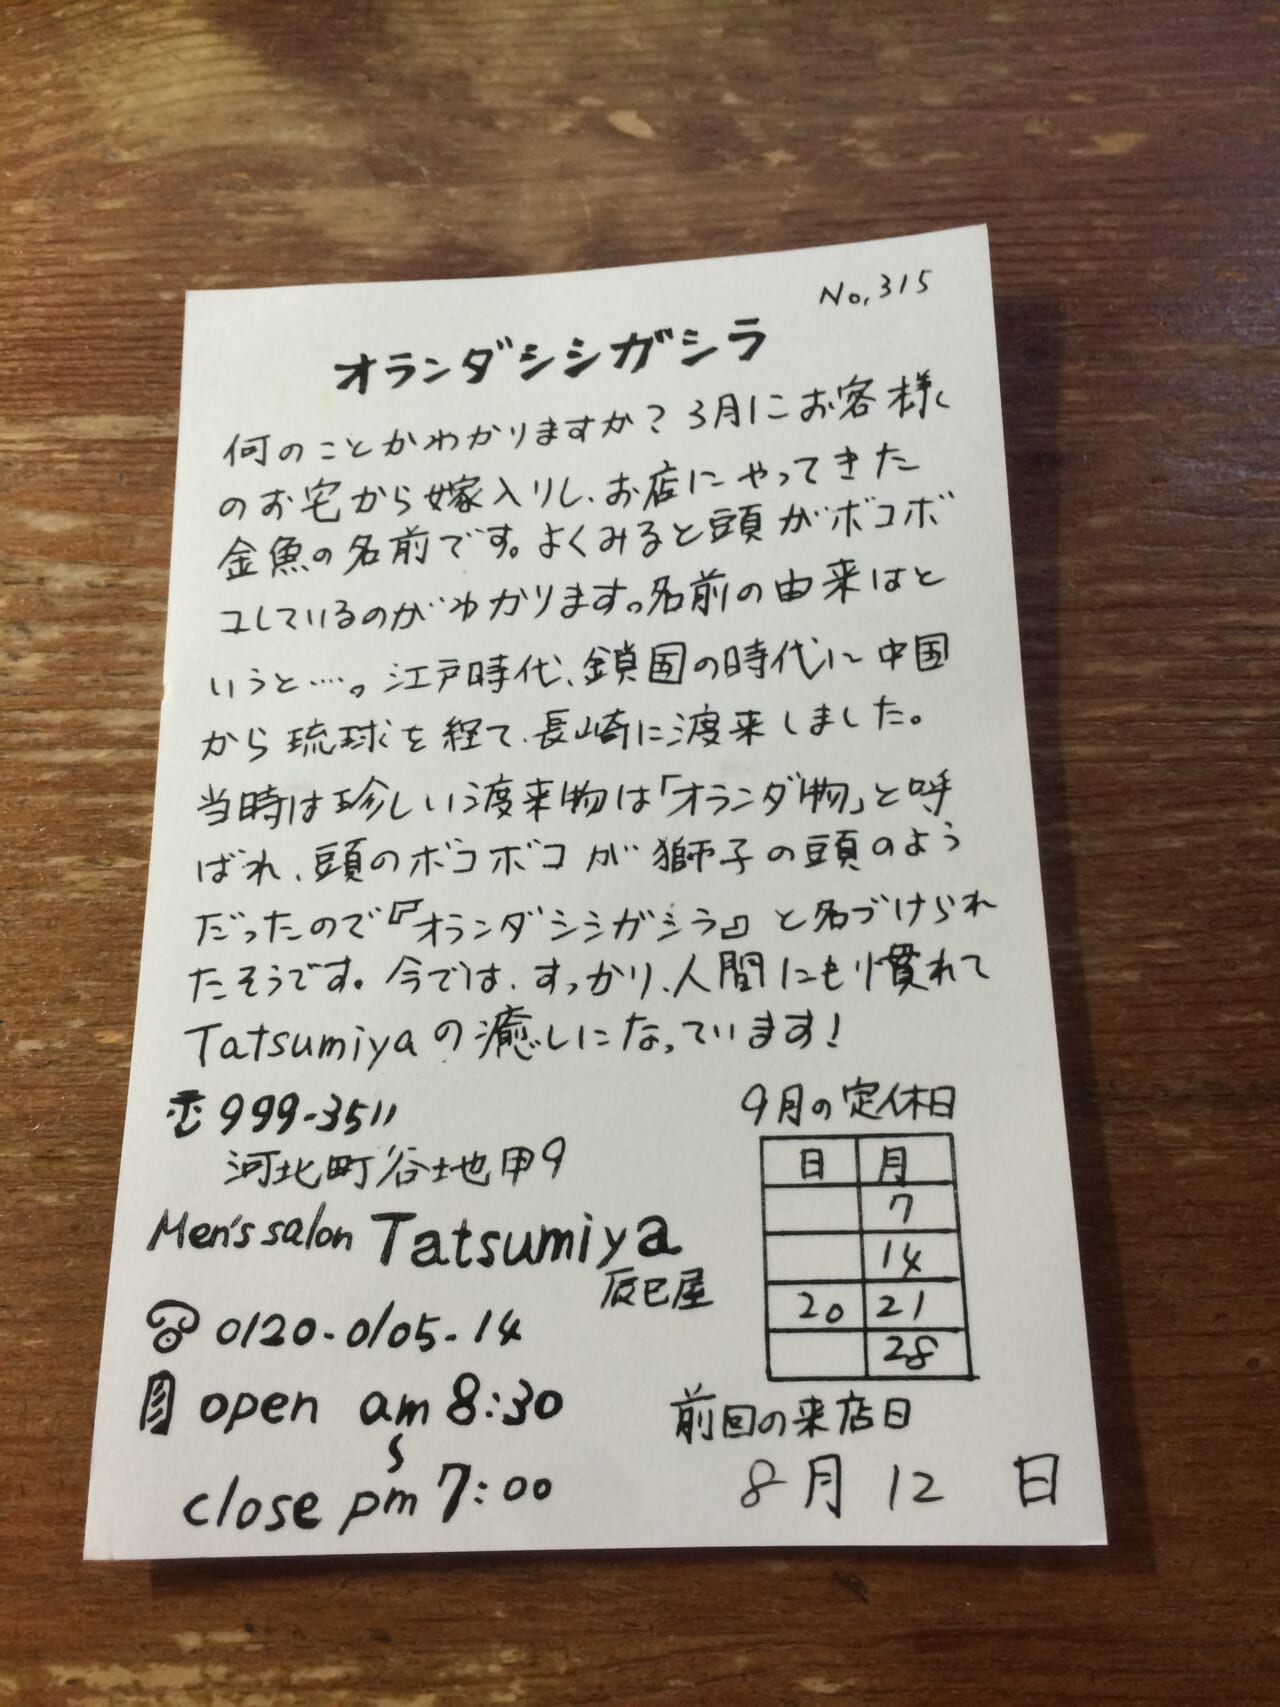 No,315
オランダシシガシラ
何のことかわかりますか？3月にお客様
のお宅から嫁入りし、お店にやってきた
金魚の名前です。よくみると頭がボコボ
コしているのがわかります。名前の由来はと
いうと…。江戸時代、鎖国の時代に中国
から琉球を経て、長崎に渡来しました。
当時は珍しい渡来物は「オランダ物」と呼
ばれ、頭のボコボコが獅子の頭のよう
だったので『オランダシシガシラ』と名づけられ
たそうです。今では、すっかり、人間にも慣れて
Tatsumiyaの癒しになっています！
999-3511
河北町谷地甲9
Men's salon Tatsumiya
辰巳屋
☎ 0120-0105-14
open am 8:30
〜
close pm 7:00
9月の定休日
日 月
7
14
20 21
28
前回の来店日
8月 12 日